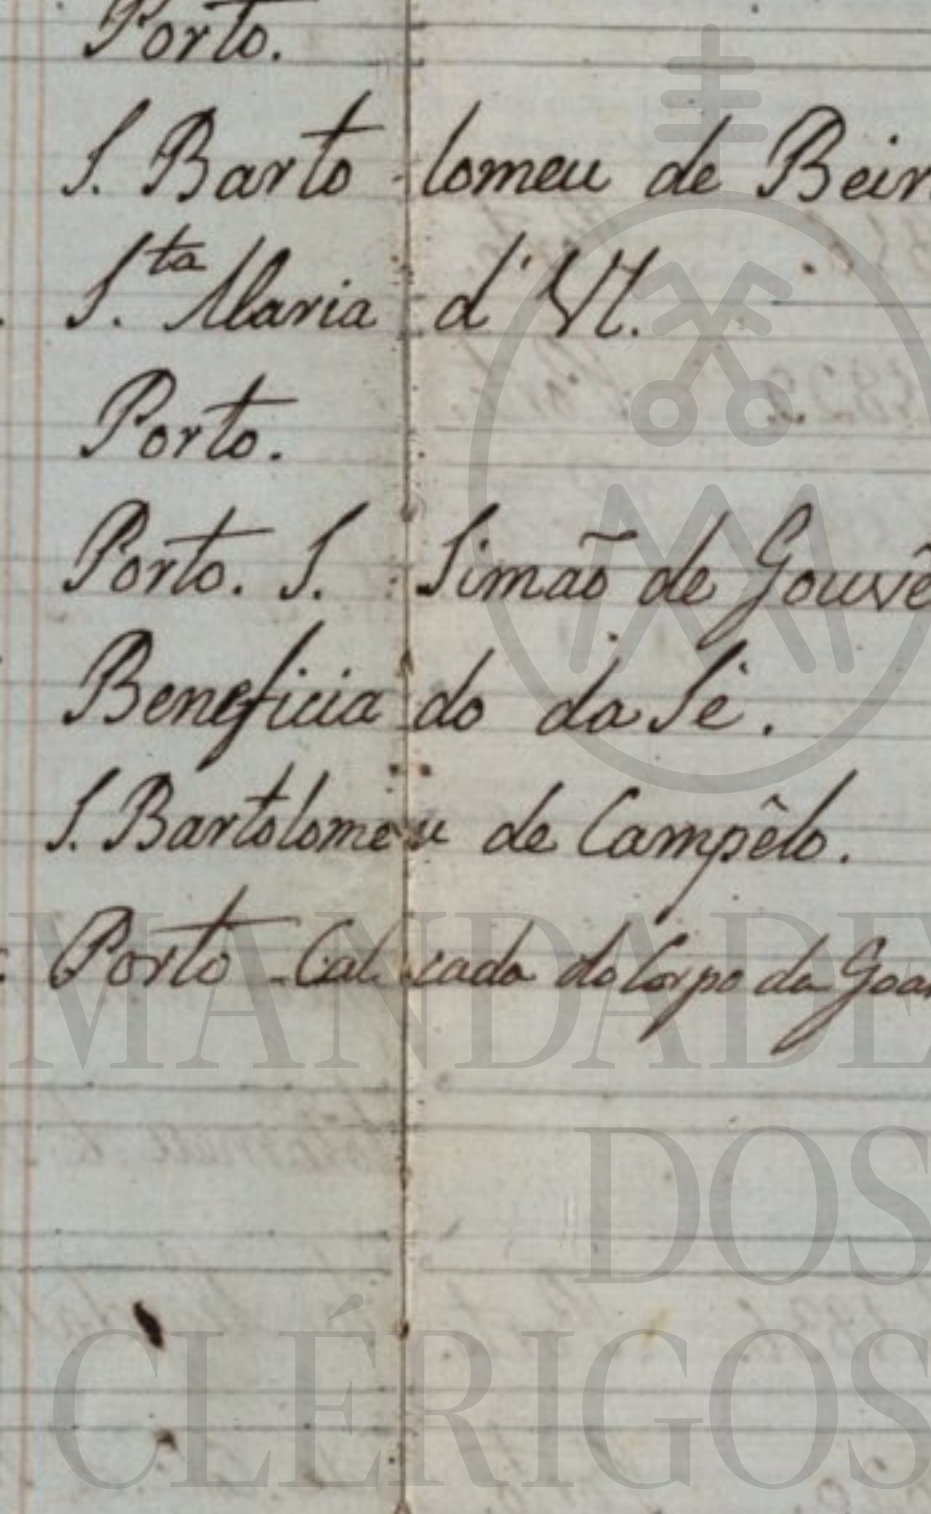 Porto.
S. Bartolomeu de Beir
S.ta Maria d'
Porto.
Porto. S. Simão de Gouvê
Beneficiado da Sé.
S. Bartolomeu de Campêlo.
Porto - Calçada do Corpo da Goar
MANDADE
DOS
CLÉRIGOS